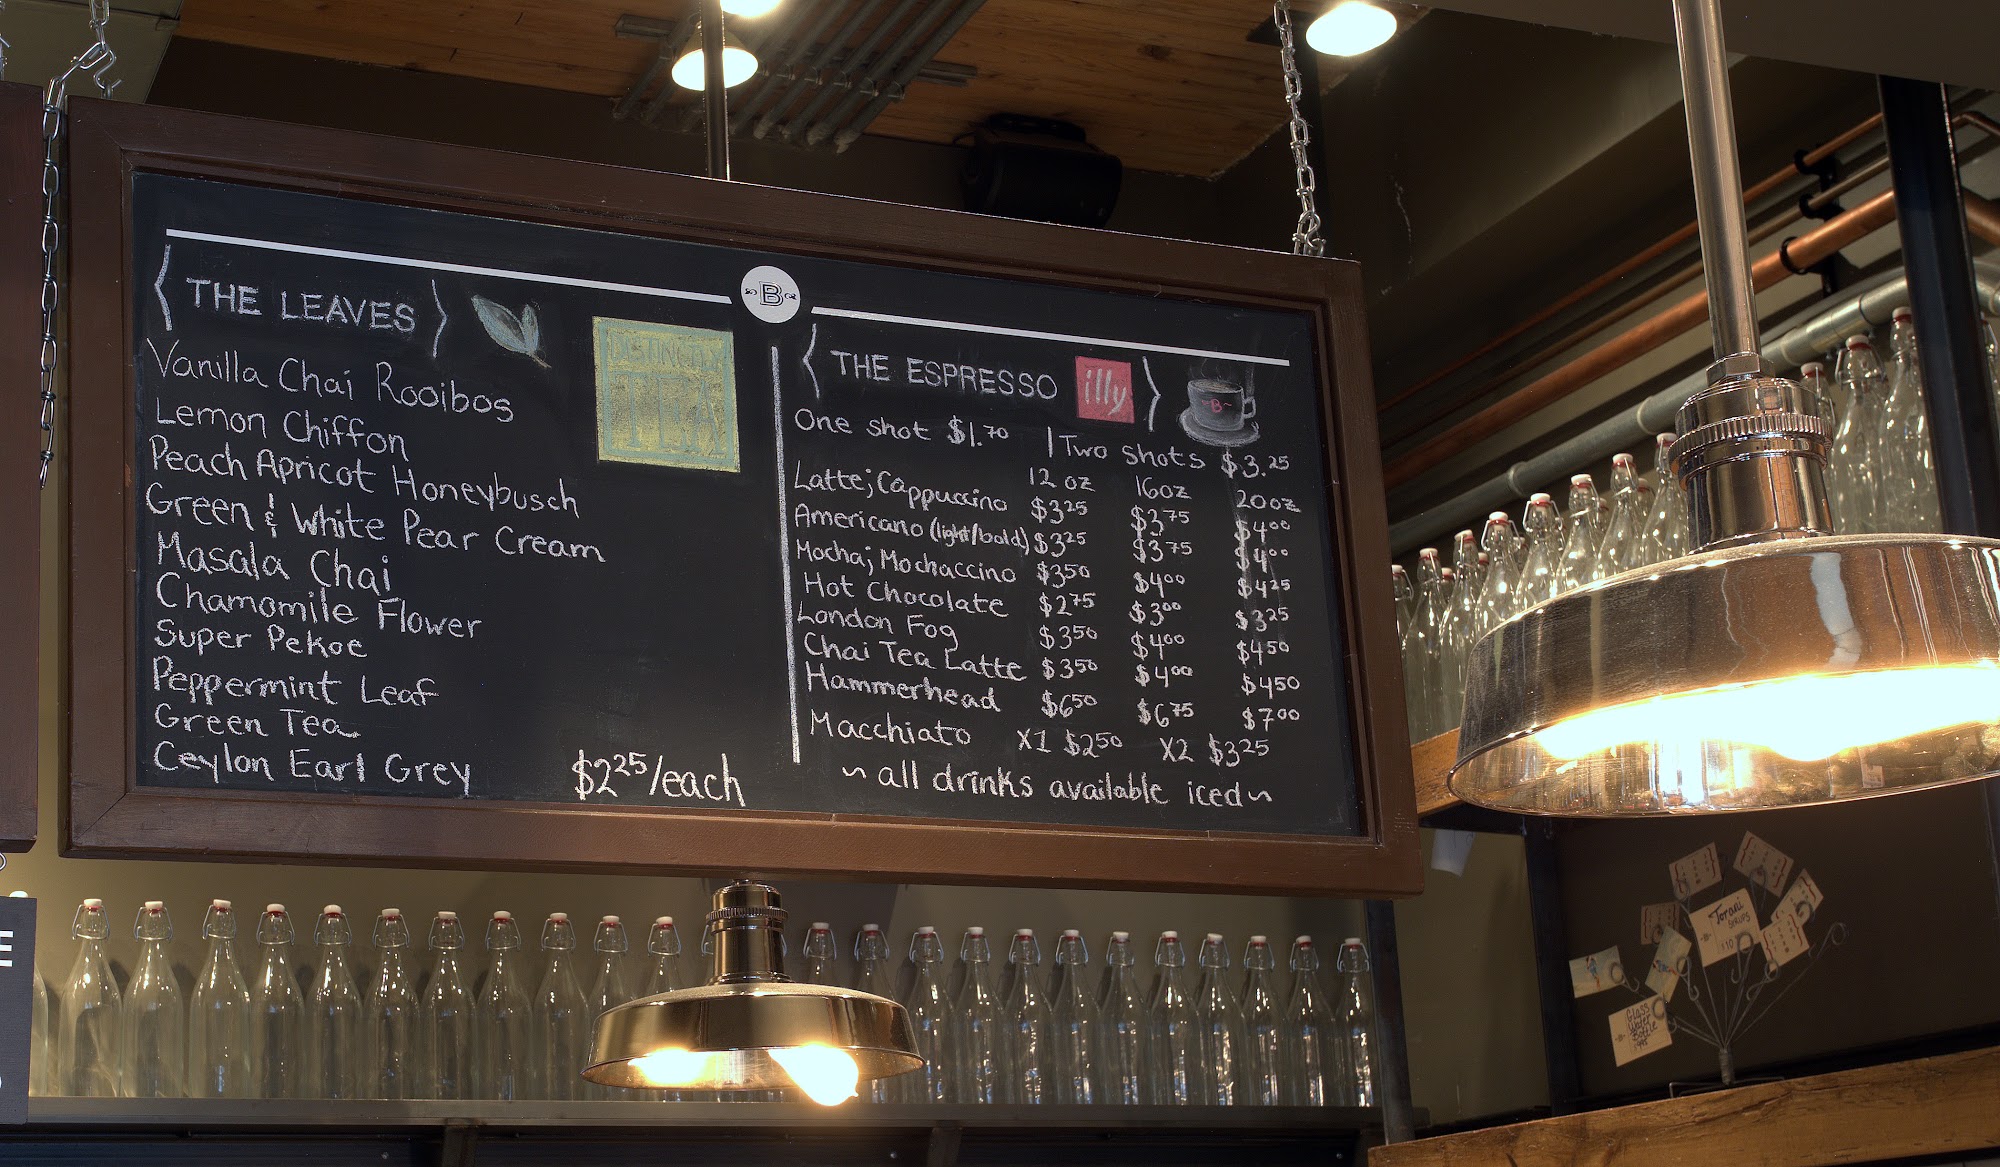 THE LEAVES
Vanilla Chai Rooibos
Lemon Chiffon
Peach Apricot Honeybusch
Green & White Pear Cream
Masala Chai
Chamomile Flower
Super Pekoe
Peppermint Leaf
Green Tea
Ceylon Earl Grey
$2.25/each
TEA
B
THE ESPRESSO illy
B
One shot $1.70 | Two shots $3.25
12 oz 16oz 20oz
Latte; Cappuccino $3.25 $3.75 $4.00
Americano (light/bold) $3.25 $3.75 $4.00
Mocha; Mochaccino $3.50 $4.00 $4.25
Hot Chocolate $2.75 $3.00 $3.25
London Fog $3.50 $4.00 $4.50
Chai Tea Latte $3.50 $4.00 $4.50
Hammerhead $6.50 $6.75 $7.00
Macchiato x1 $2.50 x2 $3.25
~ all drinks available iced ~
E
Torani
SYRUPS
$10
Glass
Water
Bottle